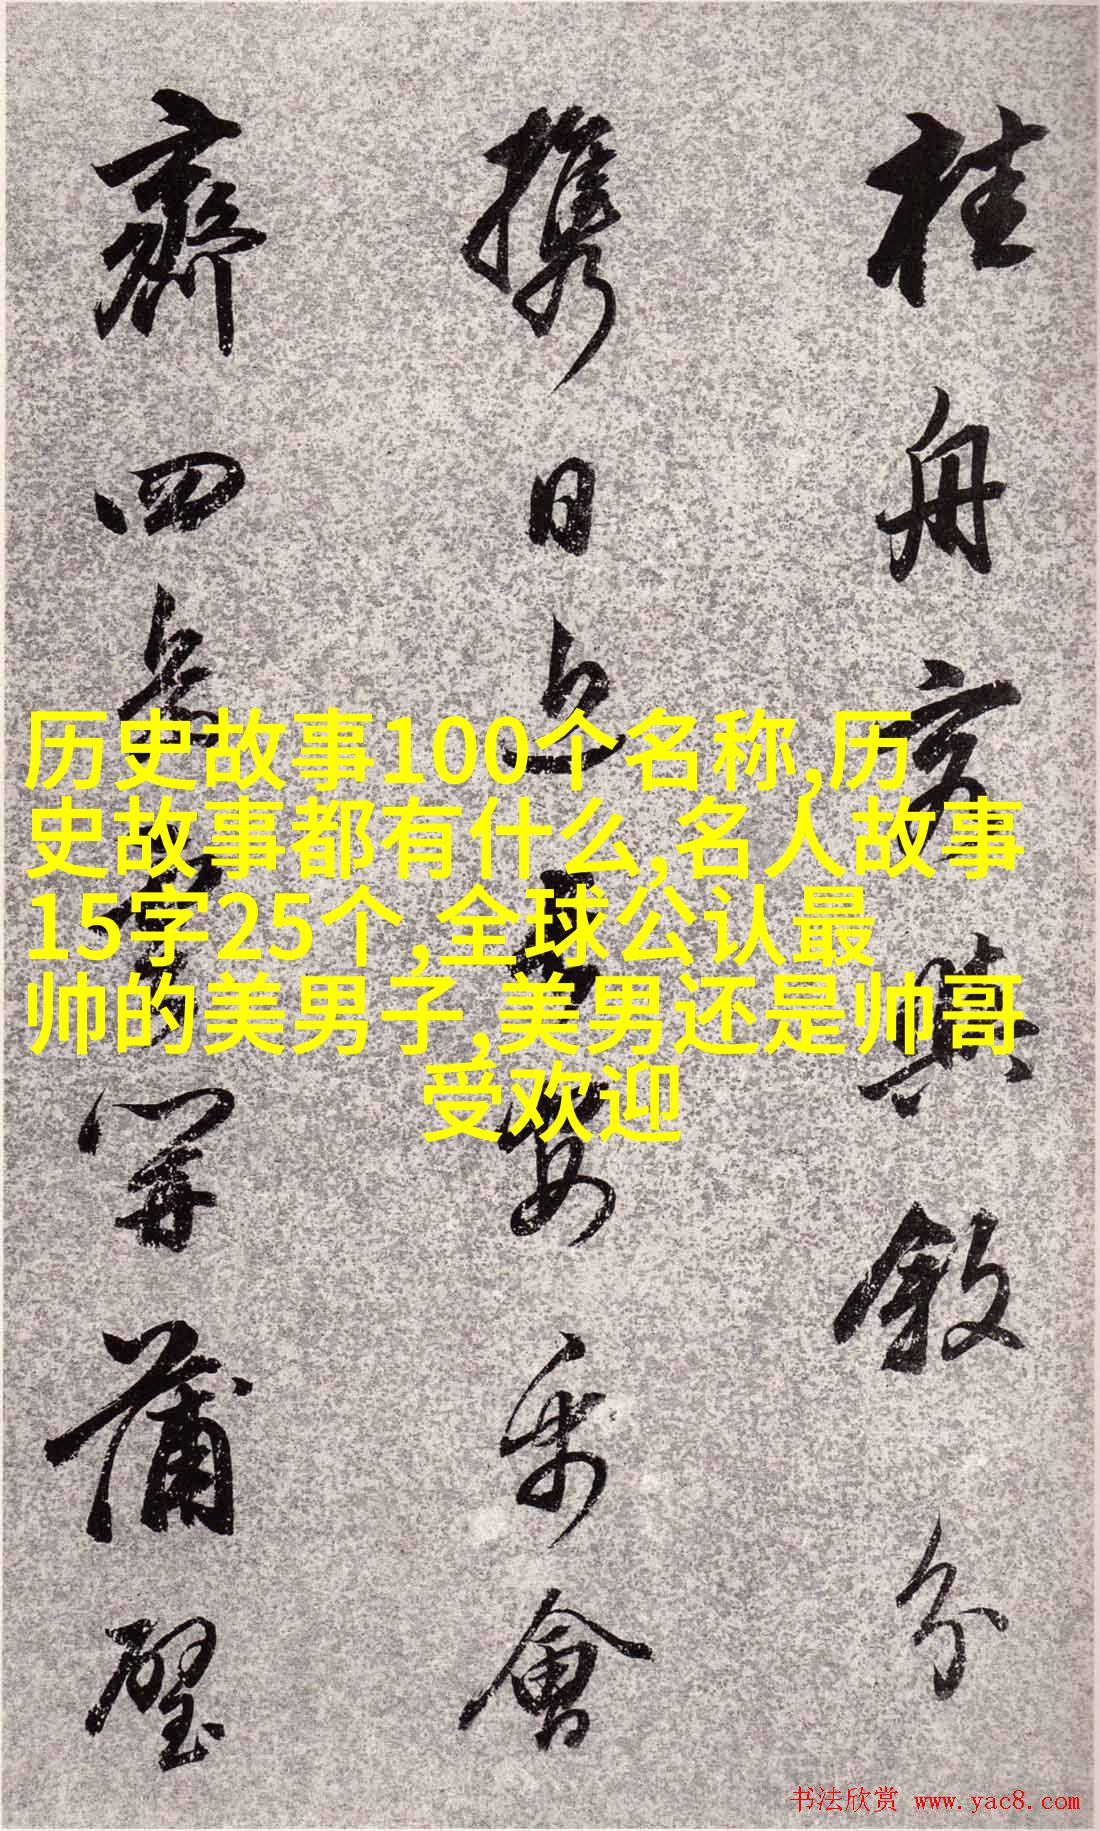 桂舟玄與敘分
攜日上
安乐會
齊四
開蒲壁
历史故事100个名称,历
史故事都有什么,名人故事
15字25个,全球公认最
帅的美男子,美男还是帅哥
受欢迎
书法欣赏 www.yac8.com